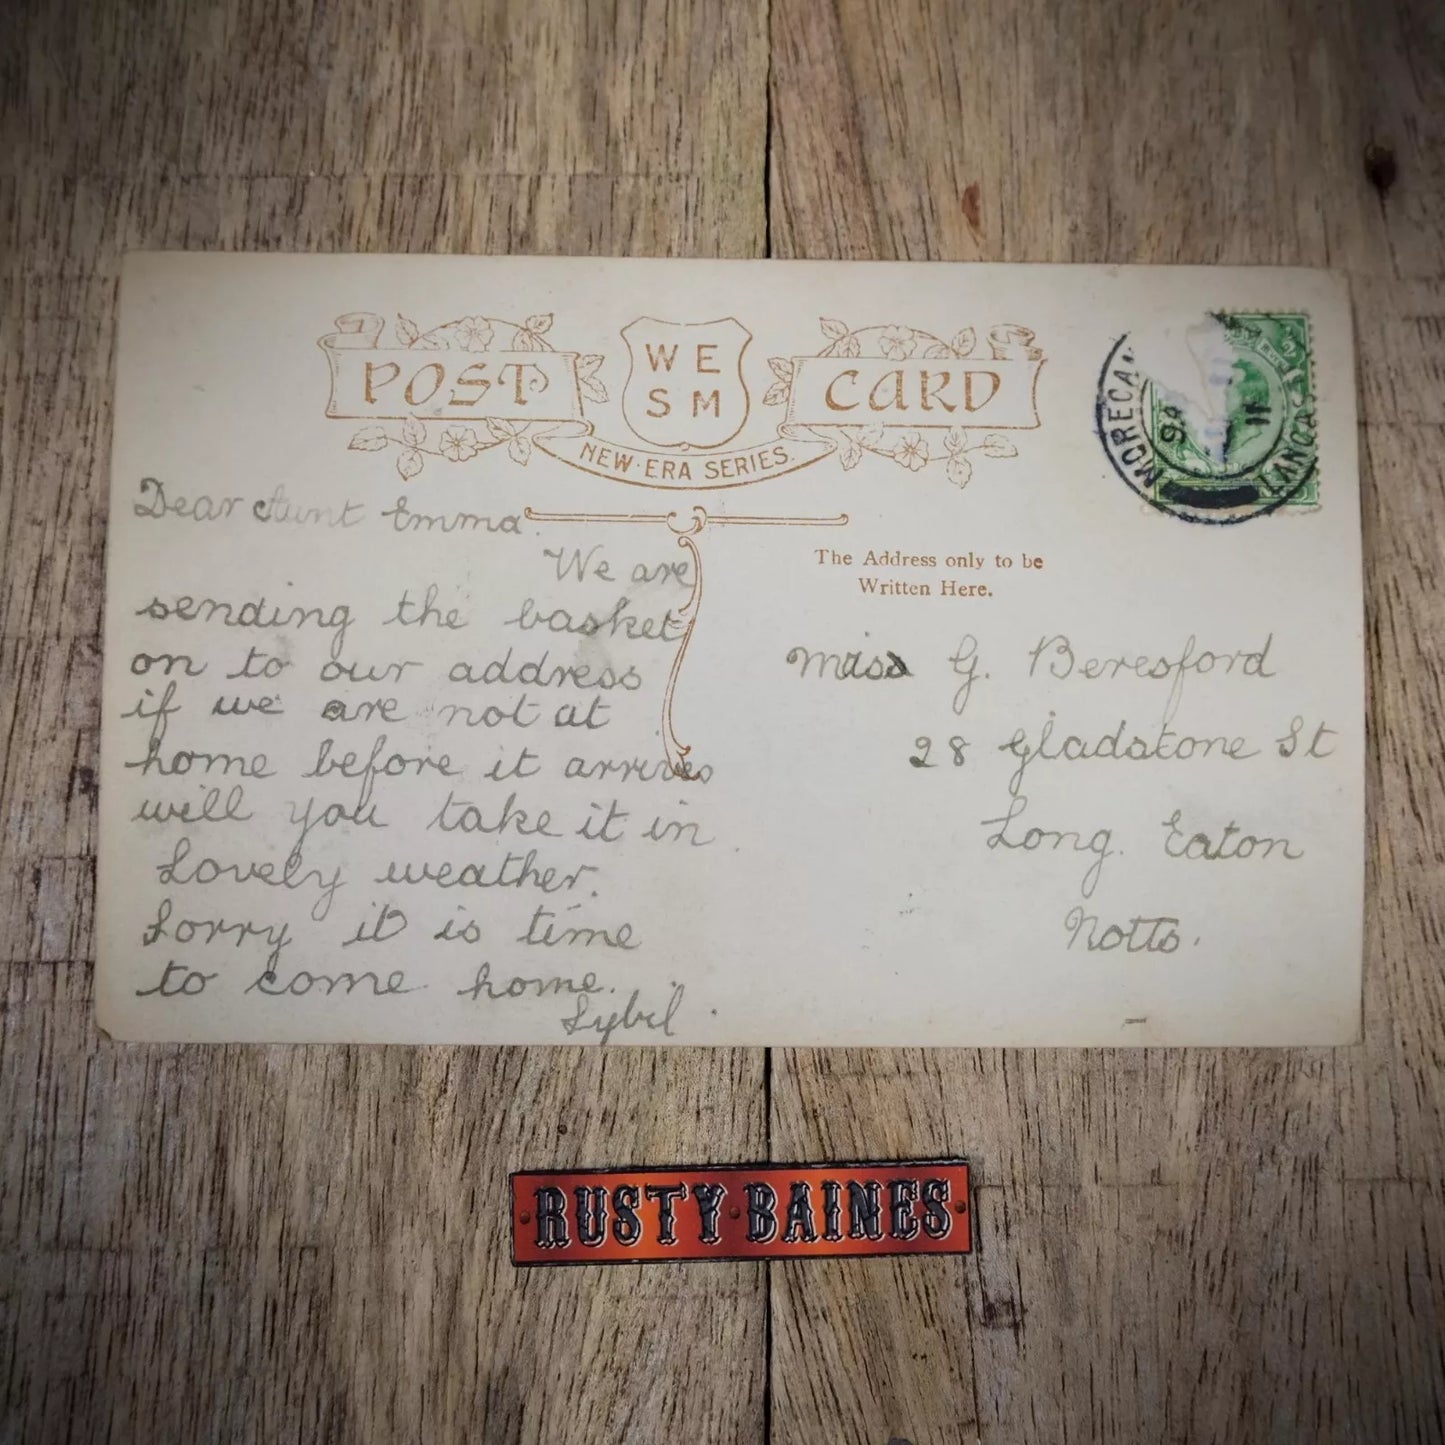 POST CARD
W E
S M
NEW ERA SERIES.
MORECAM
LANCASTER
9A
11
Dear Aunt Emma.
We are
sending the basket
on to our address
if we are not at
home before it arrives
will you take it in
Lovely weather.
Sorry it is time
to come home.
Sybil.
The Address only to be
Written Here.
Miss G. Beresford
28 Gladstone St
Long. Eaton
Notts.
RUSTY BAINES